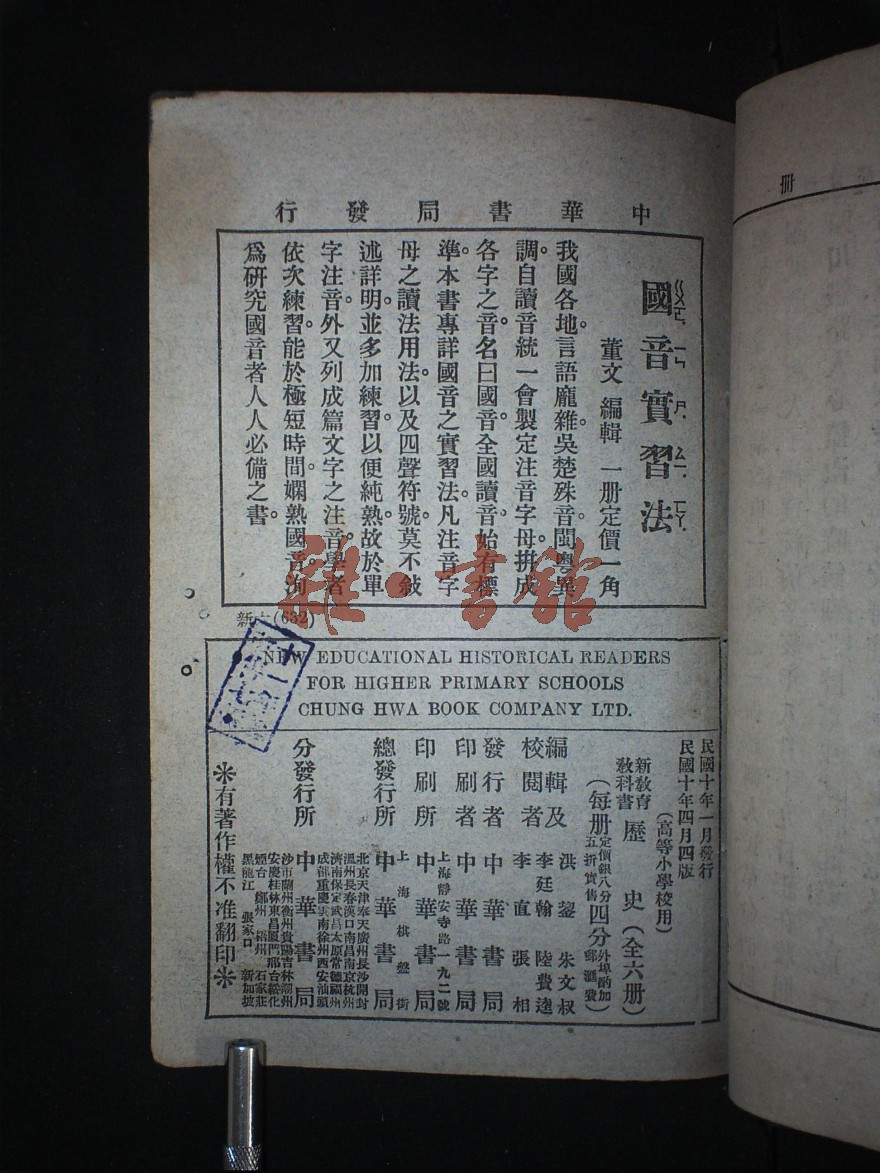 中華書局發行
國音實習法
ㄍㄨㄛ ㄧㄣ ㄕ ㄙㄧ ㄈㄚ
董文 編輯 一册定價一角
我國各地。言語龐雜。吳楚殊音。閩粵異
調。自讀音統一會製定注音字母。拼成
各字之音。名曰國音。全國讀音。始有標
準。本書專詳國音之實習法。凡注音字
母之讀法用法。以及四聲符號。莫不敍
述詳明。並多加練習。以便純熟。故於單
字注音。外又列成篇文字之注音。學者
依次練習。能於極短時間。嫻熟國音。洵
爲研究國音者人人必備之書。
(632)
雜·書館
NEW EDUCATIONAL HISTORICAL READERS
FOR HIGHER PRIMARY SCHOOLS
CHUNG HWA BOOK COMPANY LTD.
民國十年一月發行
民國十年四月四版
(高等小學校用)
新教育教科書 歷史 (全六册)
(每册定價銀八分五折實售四分外埠酌加郵滙費)
編輯及校閱者 洪鋆 朱文叔 李廷翰 陸費逵 李直 張相
發行者 中華書局
印刷者 中華書局
印刷所 上海靜安寺路一九二號 中華書局
總發行所 上海棋盤街 中華書局
分發行所 中華書局
北京天津奉天廣州長沙開封
溫州長春漢口南昌南京杭州
濟南保定武昌太原常德福州
成都重慶雲南徐州西安汕頭
沙市蘭州衡州貴陽吉林潮州
安慶桂林東昌廈門邢台綏化
煙台 鄭州 梧州 石家莊
黑龍江 張家口 新加坡
※有著作權不准翻印※
册